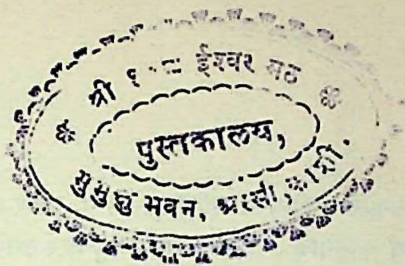 श्री ईश्वर मठ
पुस्तकालय,
मुमुक्षु भवन, अस्सी, काशी.